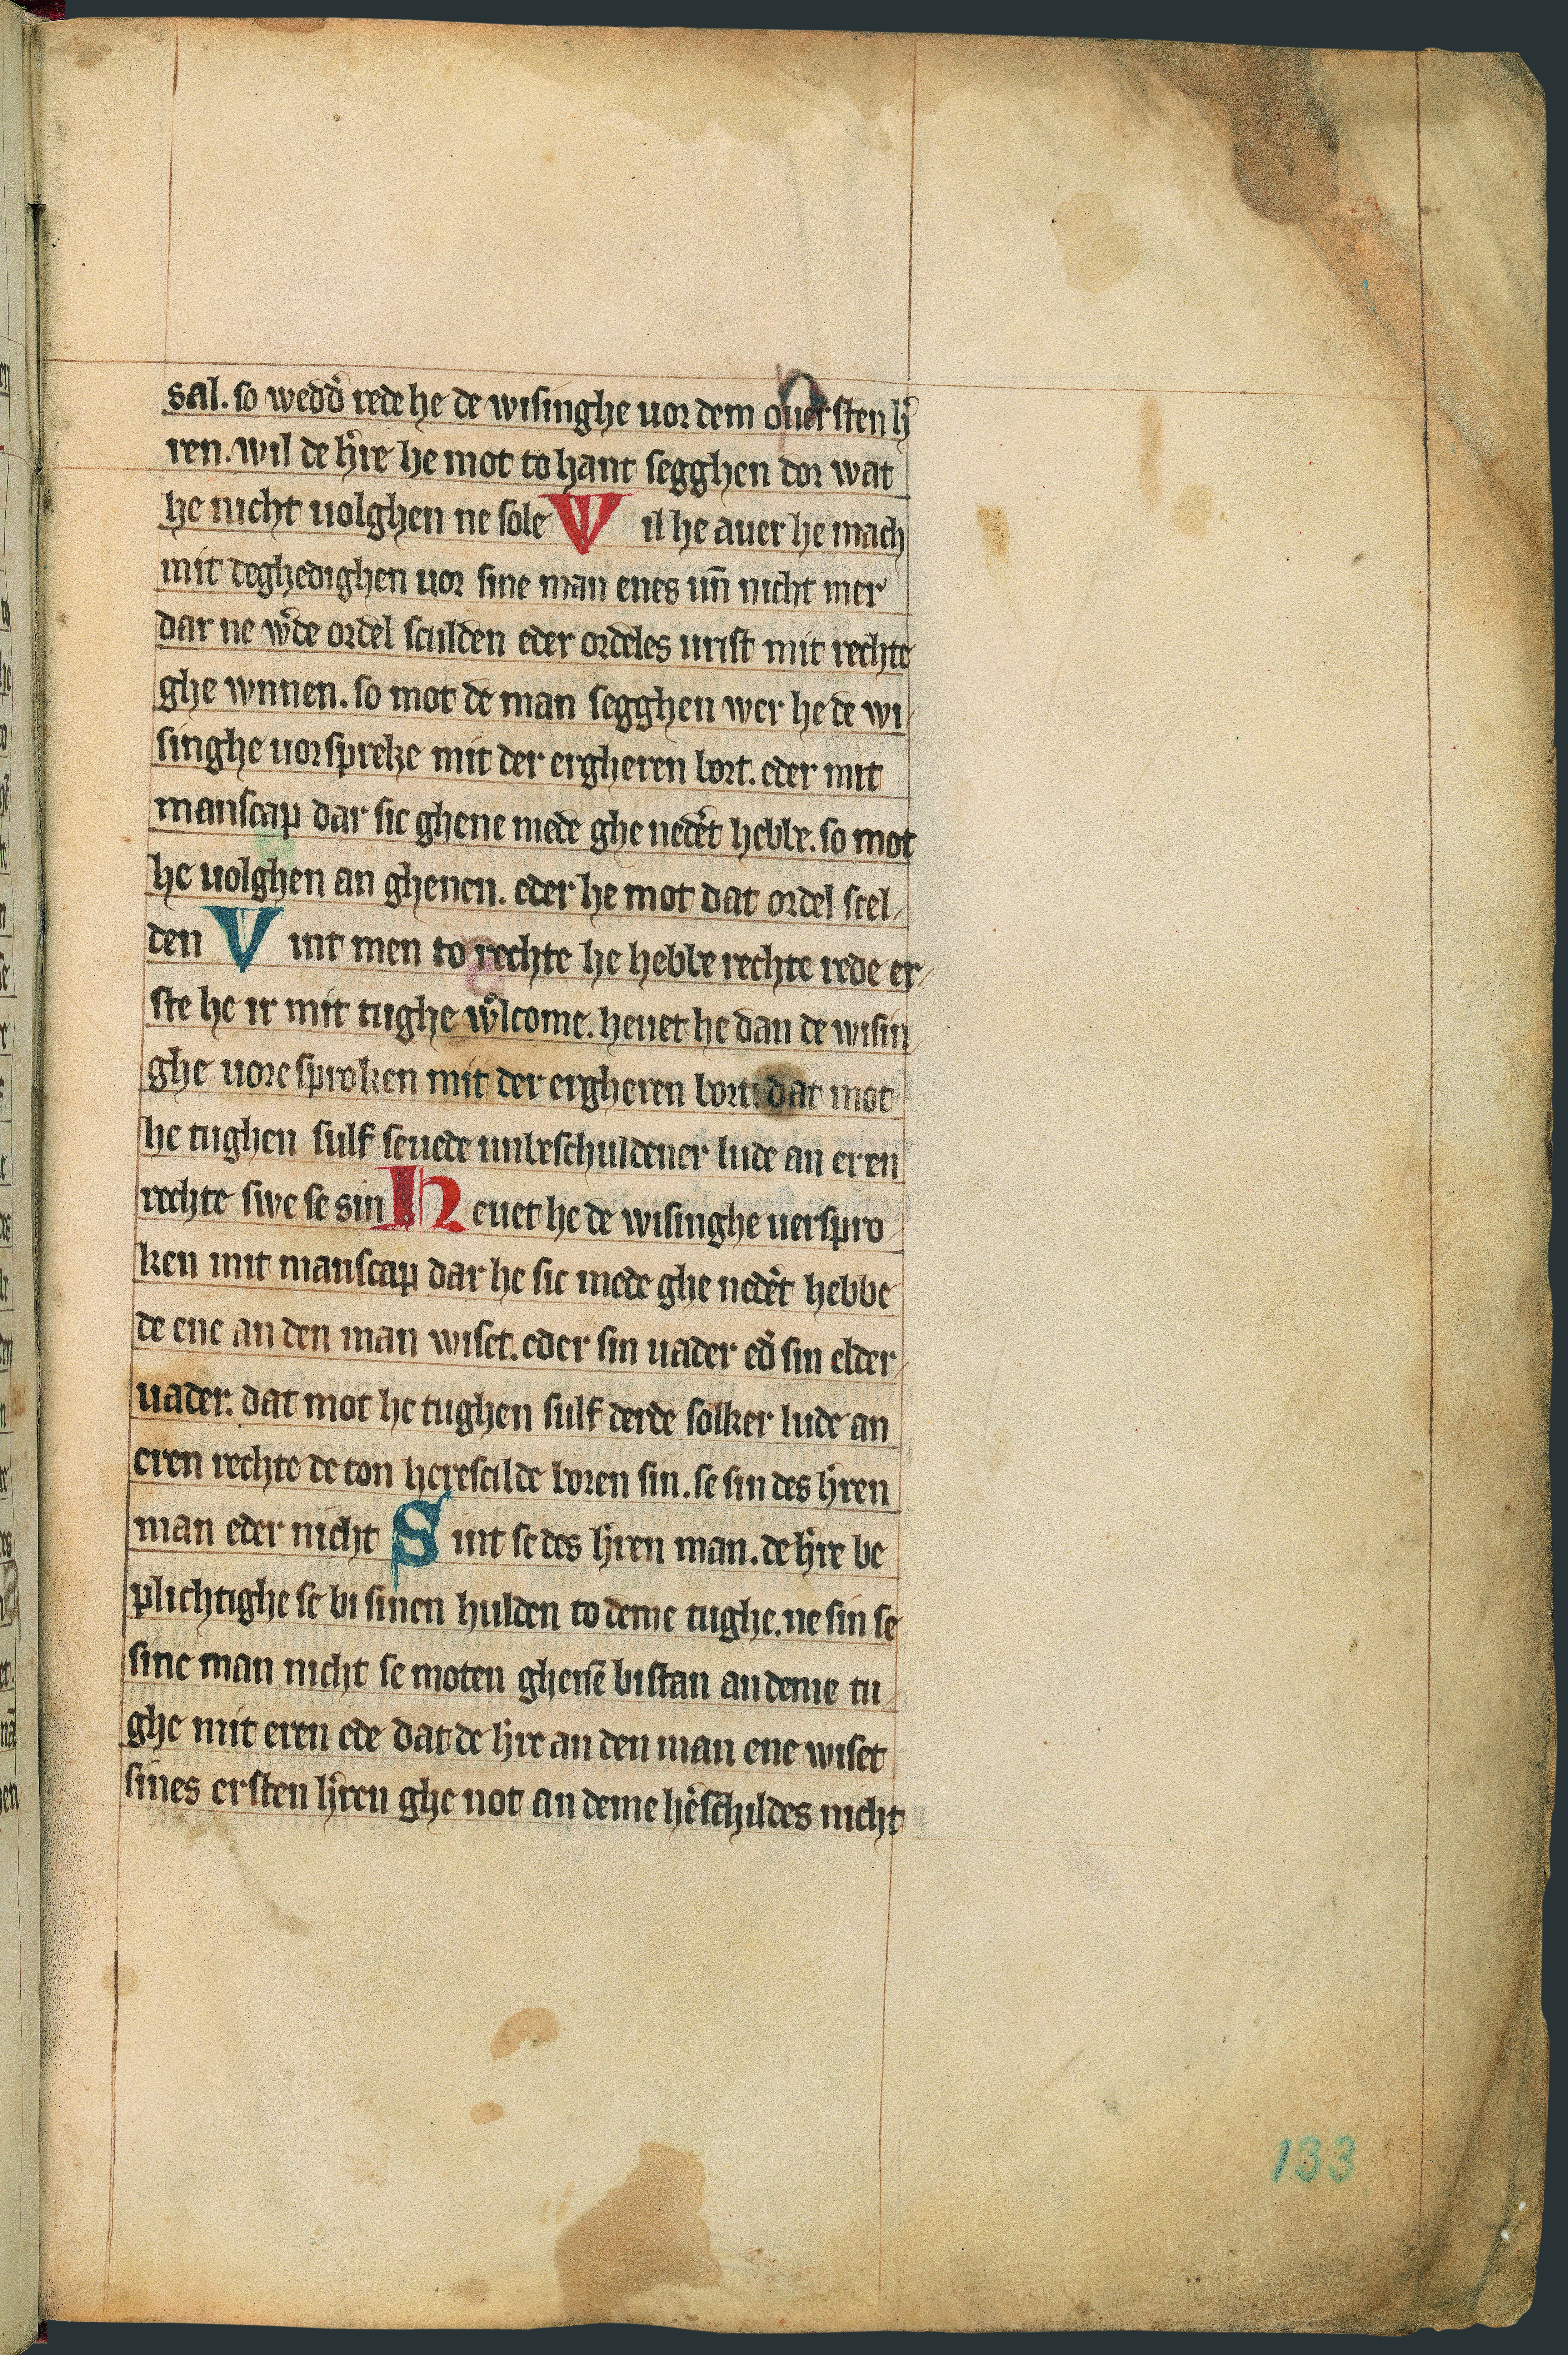 sal. so wedd᷎ rede he de wisinghe uor dem ouersten h᷎
ren. wil de h᷎re he mot to hant segghen dor wat
he nicht uolghen ne sole Wil he auer he mach
mit deghedighen uor sine man enes un̄ nicht mer
dar ne w᷎de ordel sculden eder ordeles urist mit rechte
ghe wnnen. so mot de man segghen wer he de wi/
singhe uorspreke mit der ergheren bort. eder mit
manscap dar sic ghene mede ghe nedět hebbe. so mot
he uolghen an ghenen. eder he mot dat ordel scel/
den Vint men to rechte he hebbe rechte rede er/
ste he ir mit tughe wͦlcome. heuet he dan de wisin/
ghe uore sproken mit der ergheren bort. dat mot
he tughen sulf seuede unbeschuldener lude an eren
rechte swe se sin Heuet he de wisinghe uerspro/
ken mit manscap dar he sic mede ghe nedět hebbe
de ene an den man wiset. eder sin uader ed᷎ sin elder/
uader. dat mot he tughen sulf derde solker lude an
eren rechte de ton herescilde boren sin. se sin des h᷎ren
man eder nicht Sint se des h᷎ren man. de h᷎re be
plichtighe se bi sinen hulden to deme tughe. ne sin se
sine man nicht se moten ghensē bistan an deme tu/
ghe mit eren ede dat de h᷎re an den man ene wiset
sines ersten h᷎ren ghe not an deme hěschildes nicht
133